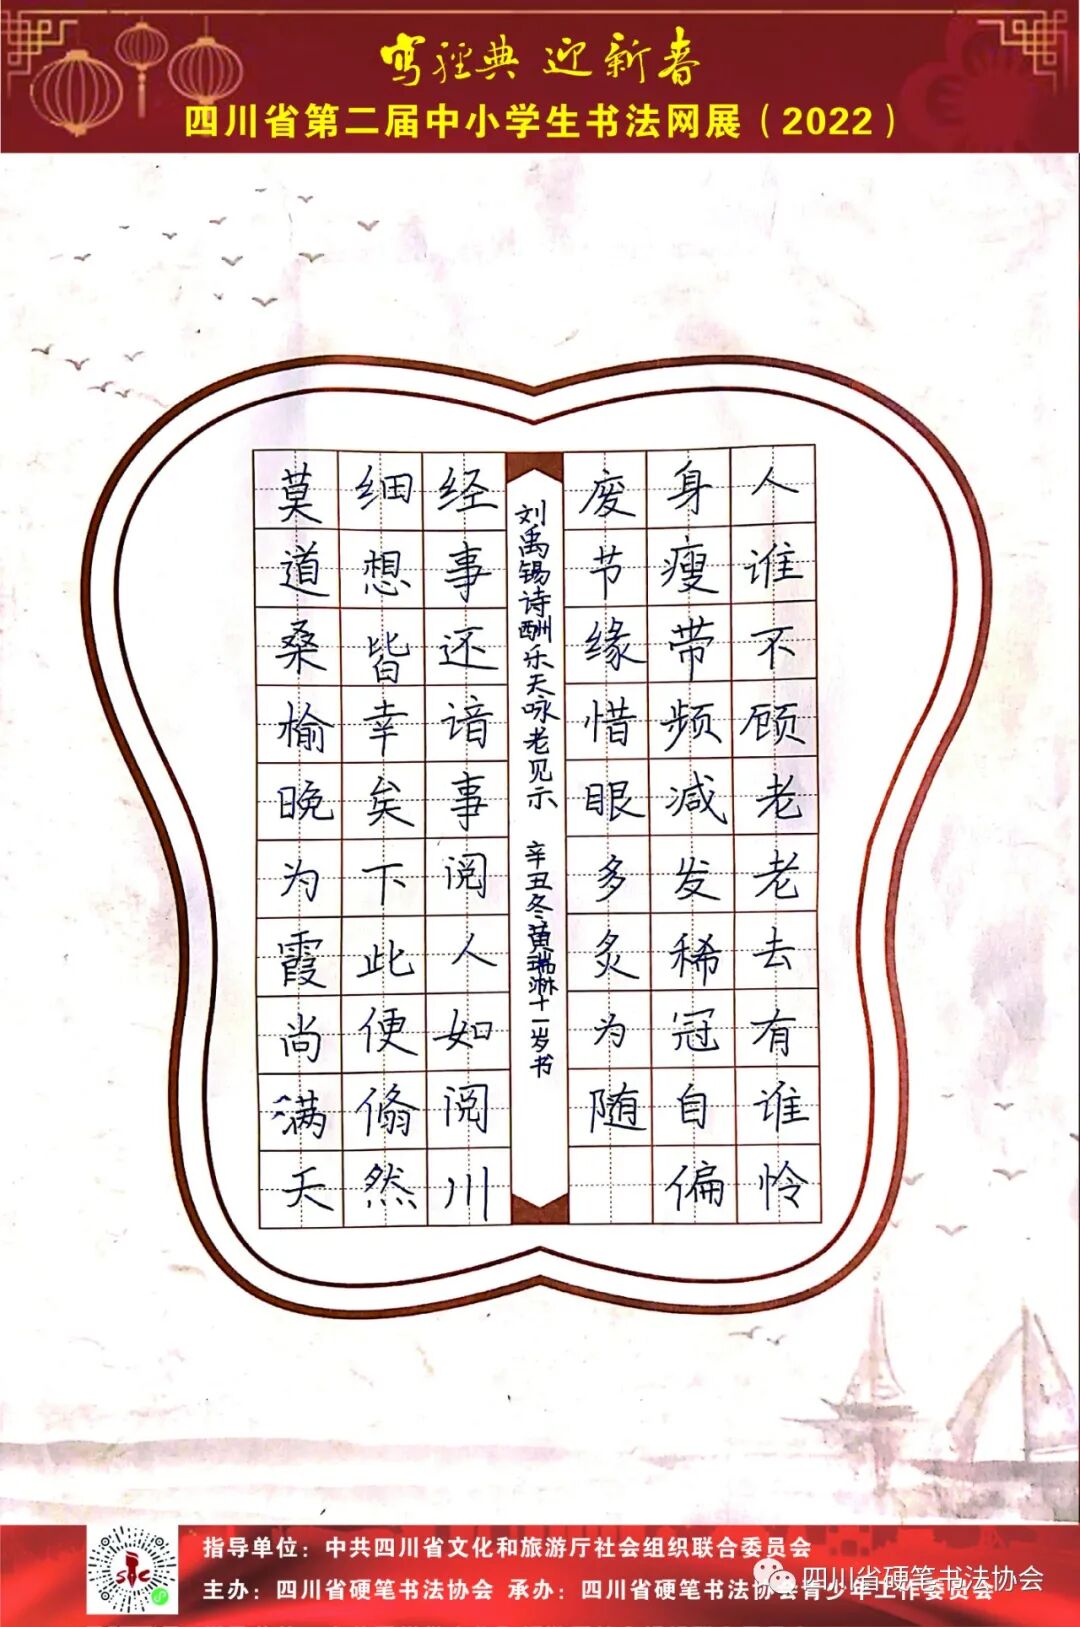 写经典 迎新春
四川省第二届中小学生书法网展（2022）
人谁不顾老老去有谁怜
身瘦带频减发稀冠自偏
废节缘惜眼多炙为随
刘禹锡诗酬乐天咏老见示 辛丑冬黄瑞淋十一岁书
经事还谙事阅人如阅川
细想皆幸矣下此便翛然
莫道桑榆晚为霞尚满天
指导单位：中共四川省文化和旅游厅社会组织联合委员会
主办：四川省硬笔书法协会 承办：四川省硬笔书法协会青少年工作委员会
四川省硬笔书法协会